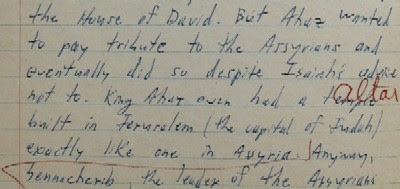 the House of David. But Ahaz wanted
to pay tribute to the Assyrians and
eventually did so despite Isaiah's advice
not to. King Ahaz even had a temple altar
built in Jerusalem (the capital of Judah)
exactly like one in Assyria. Anyway,
Sennacherib, the leader of the Assyrians